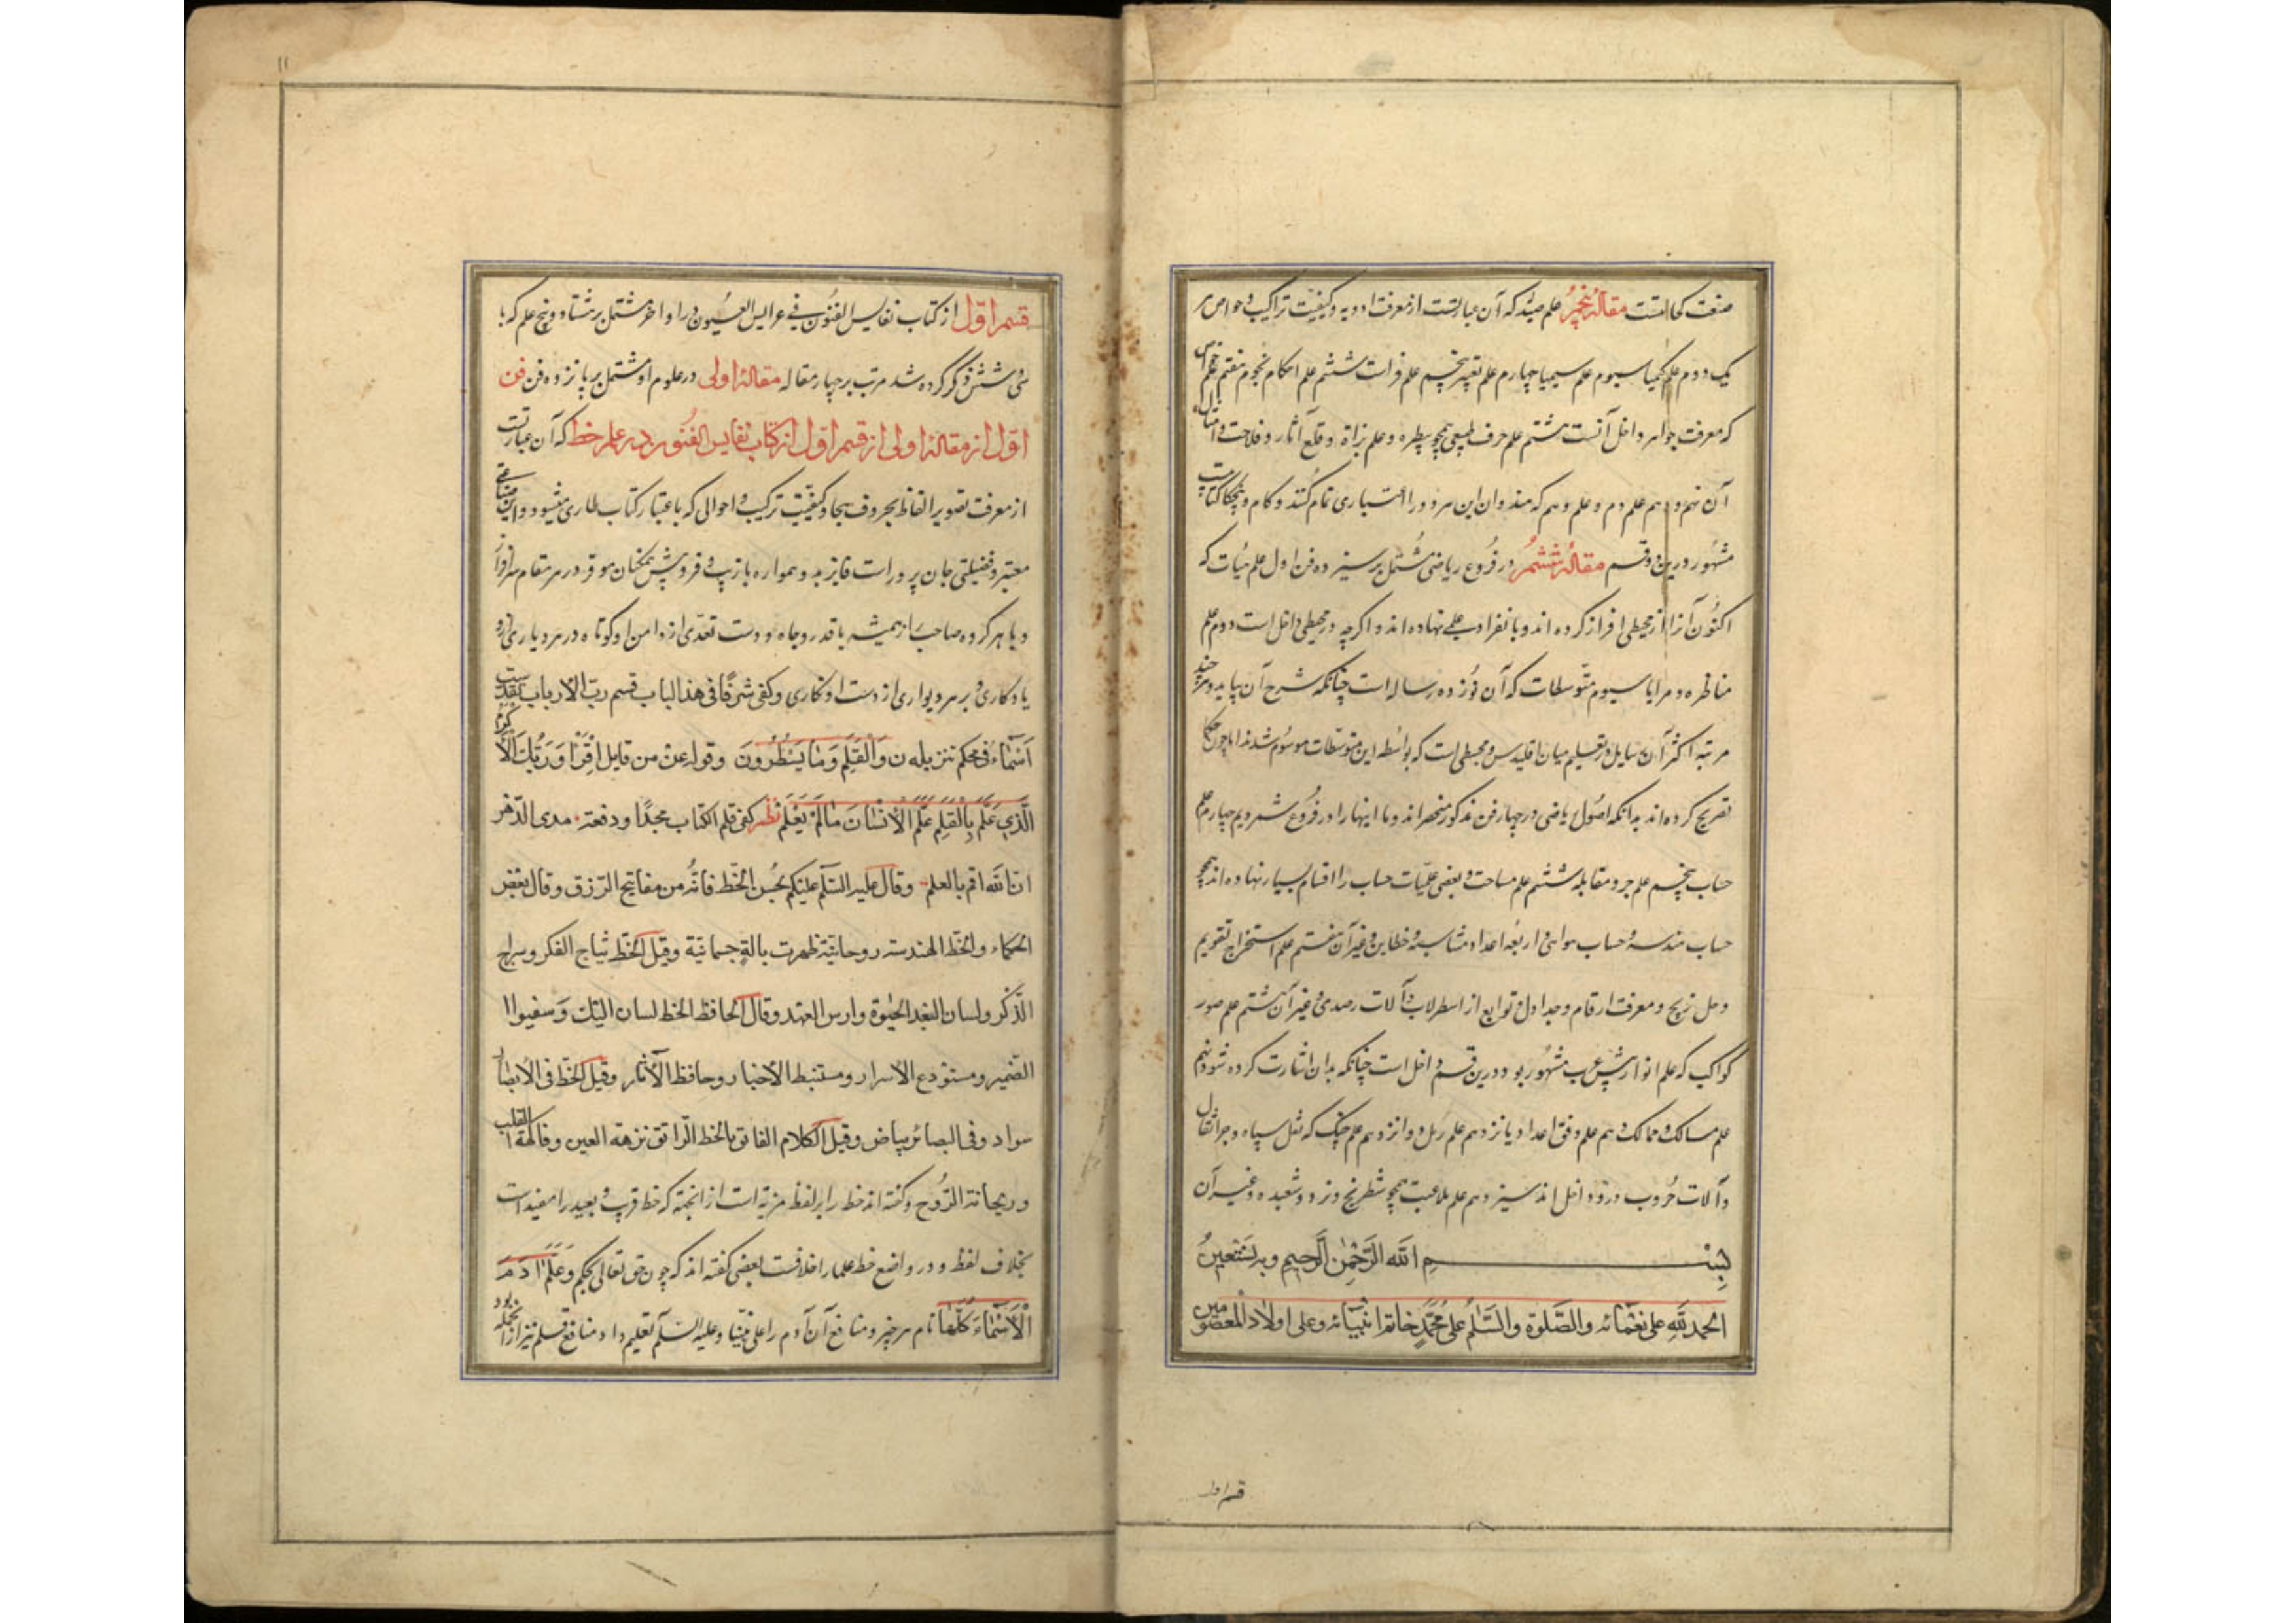 صنعت کحالتست مقالهٔ پنجم علم صیدله که آن عبارتست از معرفت ادویه و کیفیت تراکیب و خواص هر
یک دوم علم کیمیا سیوم علم سیمیا چهارم علم تعبیر پنجم علم فراست ششم علم احکام نجوم هفتم علم خواص
که معرفت جواهر داخل آنست هشتم علم حرف طبیعی همچو بیطره و علم بزاة و قلع آثار و فلاحت و امثال
آن نهم و دهم علم دم و علم وهم که هندوان این هر دو را اعتباری تمام کنند و کام
مشهور درین دو قسم مقالهٔ ششم در فروع ریاضی مشتمل بر سیزده فن اول علم هیأت که
اکنون آنرا از مجسطی افراز کرده اند و بانفراد علمی نهاده اند و اگرچه در مجسطی داخل است دوم علم
مناظره و مرایا سیوم متوسطات که آن نوزده رساله است چنانکه شرح آن بیاید و هر چند
مرتبه اکثر آن مسایل در تعلیم میان اقلیدس و مجسطی است که بواسطه این متوسطات موسوم شدند اما چون حکما
تصریح کرده اند بدانکه اصول ریاضی در چهار فن مذکور منحصراند و ما اینها را در فروع شمردیم چهارم علم
حساب پنجم علم جبر و مقابله ششم علم مساحت و بعضی عملیات حساب را اقسام بسیار نهاده اند همچو
حساب هندسه و حساب هوائی و اربعه اعداد متناسبه و خطاین و غیر آن هفتم علم استخراج تقویم
و حل زیج و معرفت ارقام و جداول و توابع از اسطرلاب و آلات رصدی و غیر آن هشتم علم صور
کواکب که علم انوار پیش عرب مشهور بود و درین قسم داخل است چنانکه بدان اشارت کرده شود نهم
علم مسالک و ممالک دهم علم وفق اعداد یازدهم علم رمل دوازدهم علم حیل که نقل سپاه و جر اثقال
و آلات حروب درو داخل اند سیزدهم علم ملاعبت همچو شطرنج و نرد و شعبده و غیر آن
بسم الله الرحمن الرحیم وبه نستعین
الحمد لله علی نعمائه والصلوة والسلم علی محمد خاتم انبیائه وعلی اولاد المعصومین
قسم اول
۱۱
قسم اول از کتاب نفایس الفنون فی عرایس العیون در اواخر مشتمل بر هشتاد و پنج علم که با
سی و شش ذکر کرده شد مرتب بر چهار مقاله مقالهٔ اولی در علوم ادبی مشتمل بر پانزده فن فن
اول از مقالهٔ اولی از قسم اول از کتاب نفایس الفنون در علم خط که آن عبارتست
از معرفت تصویر الفاظ بحروف هجا و کیفیت ترکیب و احوالی که باعتبار کتاب طاری میشود و این صناعتی
معتبر و فضیلتی جان پرور است فایز بد و همواره بازیب و فر و پیش همکنان موقر در هر مقام سرافراز
و با هر گروه صاحب راز همیشه با قدر و جاه و دست تعدی از دامن او کوتاه در هر دیاری ازو
یادگاری و بر هر دیواری از دست او نگاری و کفی شرفا فی هذا الباب قسم رب الارباب تقدست
اسماءه فی محکم تنزیله ن والقلم وما یسطرون وقوله عز من قایل اقرأ وربک الاکرم
الذی علم بالقلم علم الانسان مالم یعلم نظم کفی قلم الکتاب مجدا ورفعة مدی الدهر
ان الله اقسم بالعلم وقال علیه السلم علیکم بحسن الخط فانه من مفاتیح الرزق وقال بعض
الحکماء والخط الهندسه روحانیة ظهرت بآلة جسمانیة وقیل الخط نتاج الفکر وسراج
الذکر ولسان البعد الحیوة وارس العهد وقال الحافظ الخط لسان الید وسفیر
الضمیر ومستودع الاسرار ومستنبط الاخبار وحافظ الآثار وقیل الخط فی الابصار
سواد وفی البصائر بیاض وقیل الکلام الفائق بالخط الرائق نزهة العین وفاکهة القلب
وریحانة الروح و گفته اند خط را بر لفظ مزیة است از آنجهة که خط قریب و بعید را مفید است
بخلاف لفظ و در واضع خط علما را خلافست بعضی گفته اند که چون حق تعالی بحکم وعلم ادم
الاسماء کلها نام هر چیز و منافع آن آدم را علی نبینا وعلیه السلم تعلیم داد منافع قلم نیز از آنجمله بود